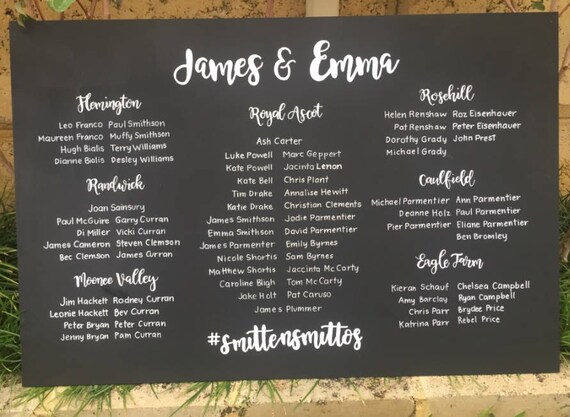 James & Emma
Flemington
Leo Franco Paul Smithson
Maureen Franco Muffy Smithson
Hugh Bialis Terry Williams
Dianne Bialis Desley Williams
Randwick
Joan Sainsury
Paul McGuire Garry Curran
Di Miller Vicki Curran
James Cameron Steven Clemson
Bec Clemson James Curran
Moonee Valley
Jim Hackett Rodney Curran
Leonie Hackett Bev Curran
Peter Bryan Peter Curran
Jenny Bryan Pam Curran
Royal Ascot
Ash Carter
Luke Powell Marc Geppert
Kate Powell Jacinta Lenon
Kate Bell Chris Plant
Tim Drake Annalise Hewitt
Katie Drake Christian Clements
James Smithson Jodie Parmentier
Emma Smithson David Parmentier
James Parmenter Emily Byrnes
Nicole Shortis Sam Byrnes
Matthew Shortis Jaccinta McCarty
Caroline Bligh Tom McCarty
Jake Holt Pat Caruso
James Plummer
#smittensmittos
Rosehill
Helen Renshaw Roz Eisenhauer
Pat Renshaw Peter Eisenhauer
Dorothy Grady John Prest
Michael Grady
Caulfield
Michael Parmentier Ann Parmentier
Deanne Holz Paul Parmentier
Pier Parmentier Eliane Parmentier
Ben Bromley
Eagle Farm
Kieran Schauf Chelsea Campbell
Amy Barclay Ryan Campbell
Chris Parr Brydee Price
Katrina Parr Rebel Price